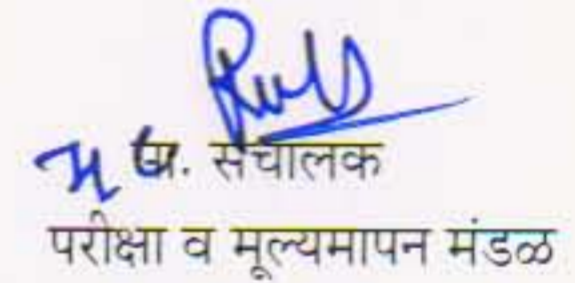 प्र. संचालक
परीक्षा व मूल्यमापन मंडळ